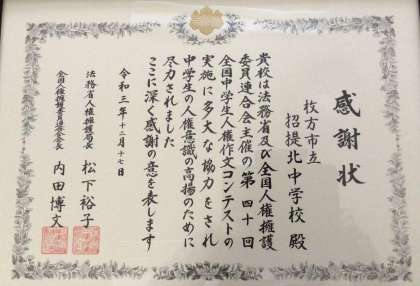 感謝状
枚方市立
招提北中学校 殿
貴校は法務省及び全国人権擁護
委員連合会主催の第四十回
全国中学生人権作文コンテストの
実施に多大な協力をされ
中学生の人権意識の高揚のために
尽力されました
ここに深く感謝の意を表します
令和三年十二月十七日
法務省人権擁護局長 松下裕子
全国人権擁護委員連合会長 内田博文